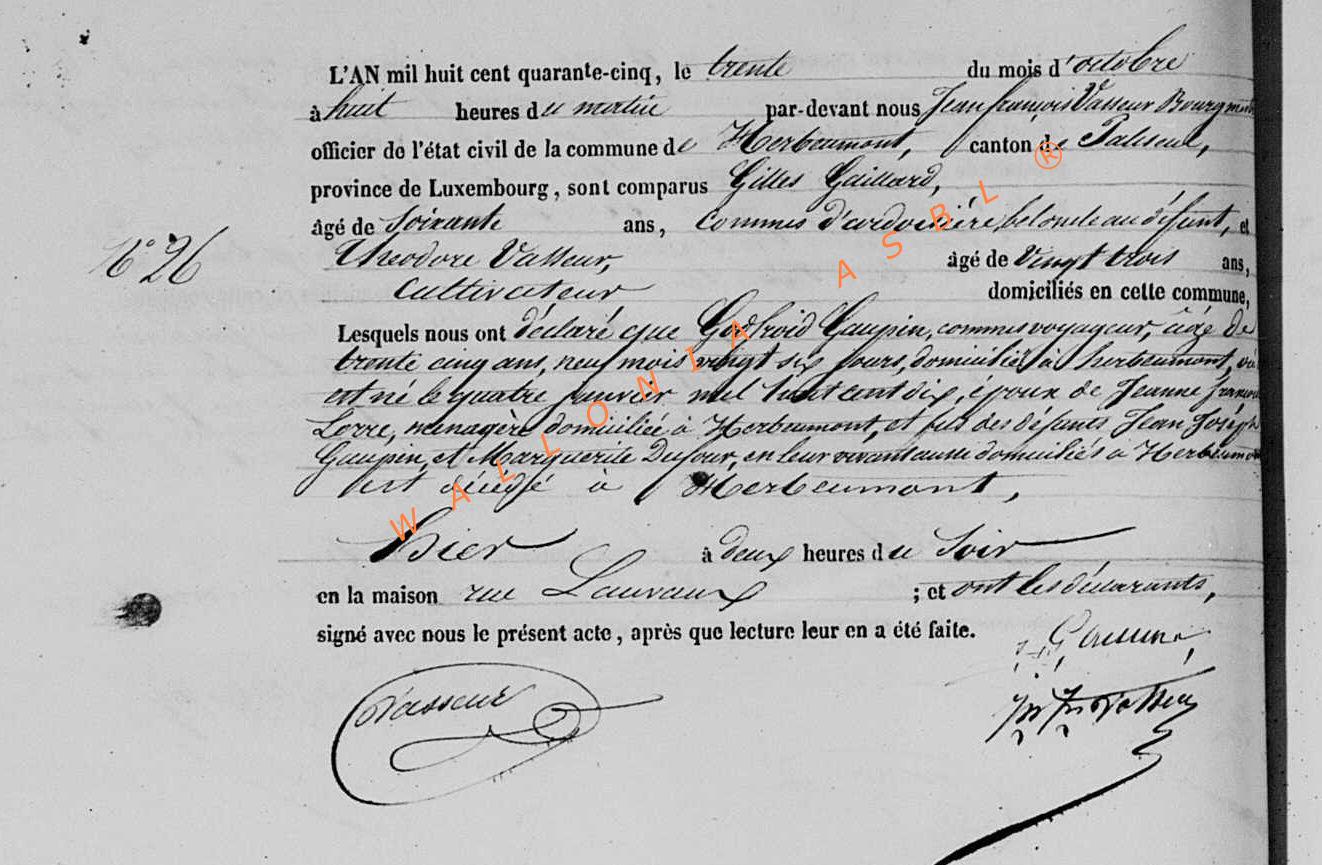 L'AN mil huit cent quarante-cinq, le trente du mois d'octobre
à huit heures du matin par-devant nous Jean françois Vasseur Bourgmestre
officier de l'état civil de la commune de Herbeumont, canton de Paliseul,
province de Luxembourg, sont comparus Gilles Gaillard,
âgé de Soixante ans, commis d'ardoisière, beloncle au défunt, et
N° 26
Théodore Vasseur, âgé de Vingt trois ans,
Cultivateur domiciliés en cette commune,
Lesquels nous ont déclaré que Godfroid Gaupin, commis voyageur, âgé de
trente cinq ans, neuf mois vingt six jours, domicilié à herbeumont, où
est né le quatre janvier mil huit cent dix, époux de Jeanne
Lorre, ménagère domiciliée à Herbeumont, et fils des défunts Jean Joseph
Gaupin, et Marguerite Dufour, en leur vivant aussi domiciliés à Herbeumont
est décédé à Herbeumont,
hier à deux heures du Soir
en la maison rue Lauvaux ; et ont les déclarants,
signé avec nous le présent acte, après que lecture leur en a été faite.
Vasseur
WALLONIA ASBL ®